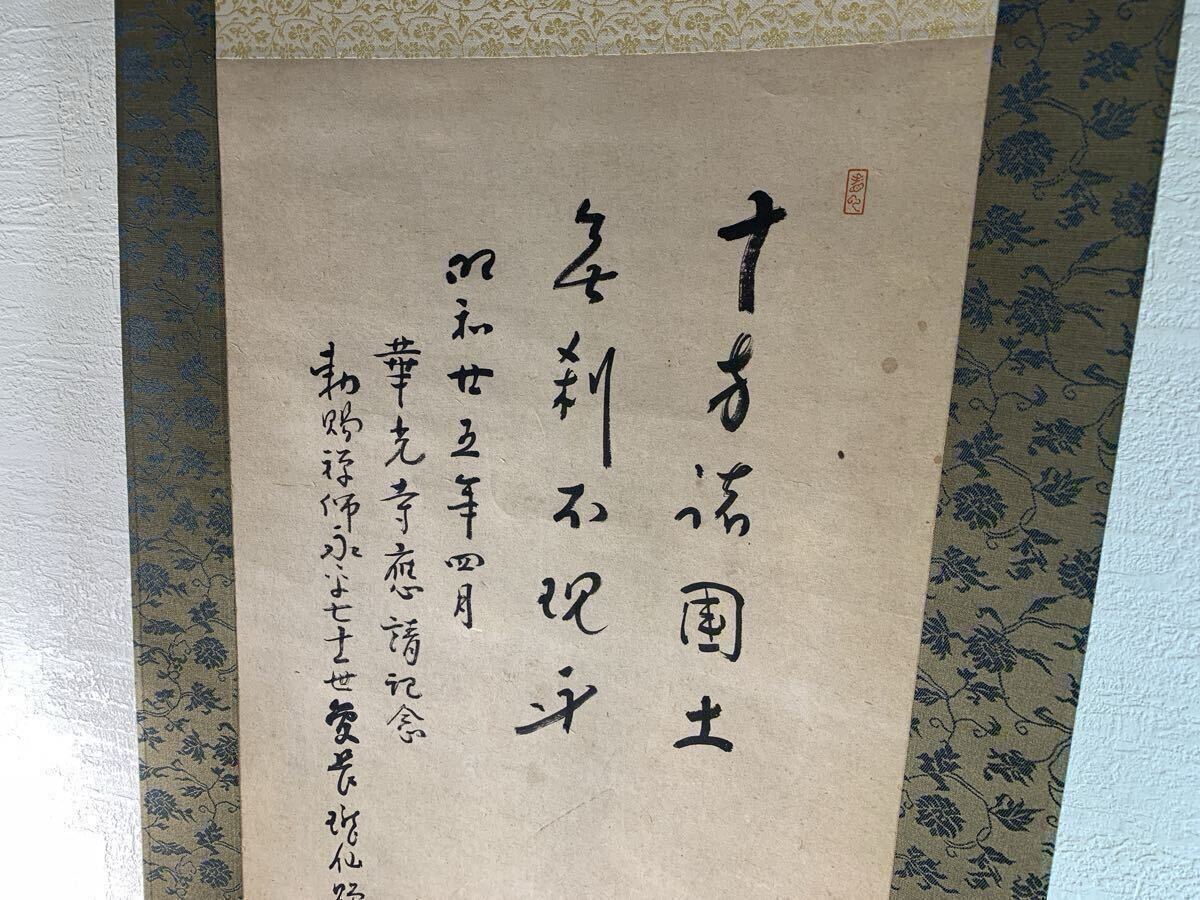 十方諸國土
無刹不現身
昭和廿五年四月
華光寺應請記念
勅賜禅師永平七十一世